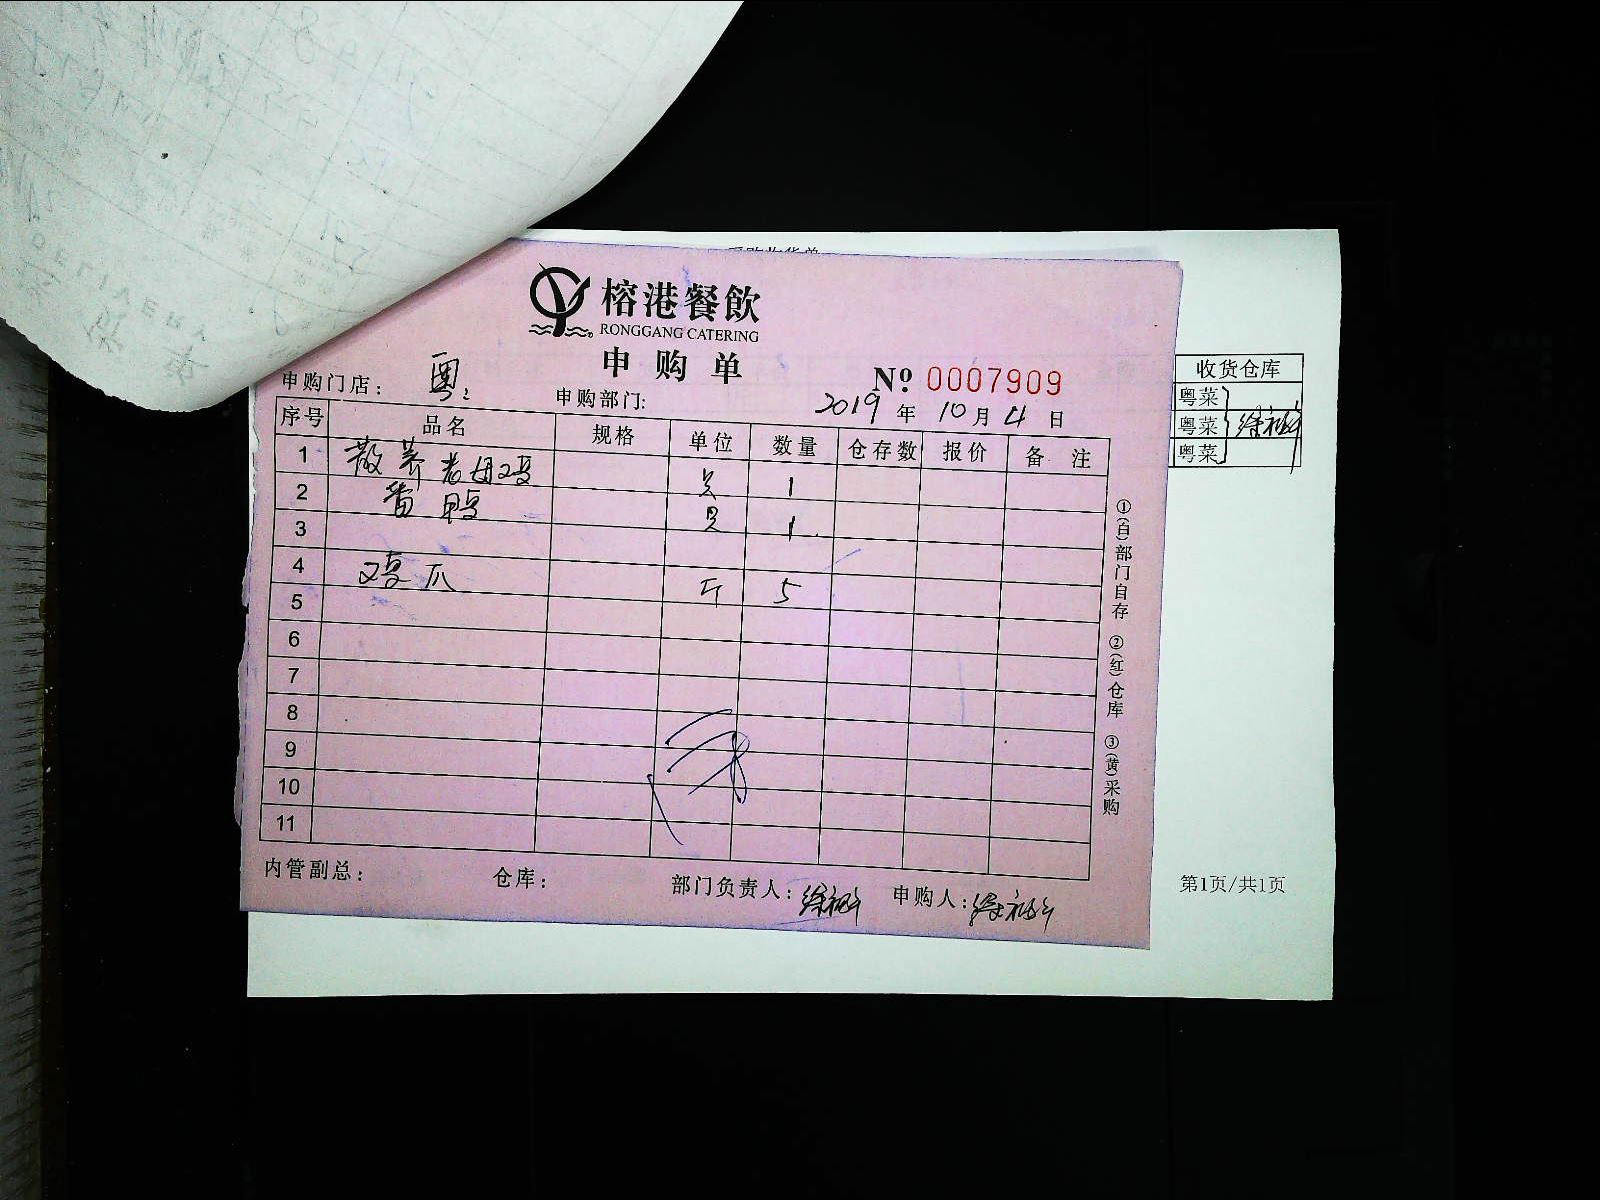 榕港餐飲
RONGGANG CATERING
申购单
№ 0007909
申购门店: 粤
申购部门:
2019 年 10 月 4 日
序号 品名 规格 单位 数量 仓存数 报价 备注
1 散养老母鸡 只 1
2 番鸭 只 1
3
4 鸡爪 斤 5
5
6
7
8
9
10
11
内管副总: 仓库: 部门负责人: 申购人:
①(白)部门自存 ②(红)仓库 ③(黄)采购
收货仓库
粤菜
粤菜
粤菜
第1页/共1页